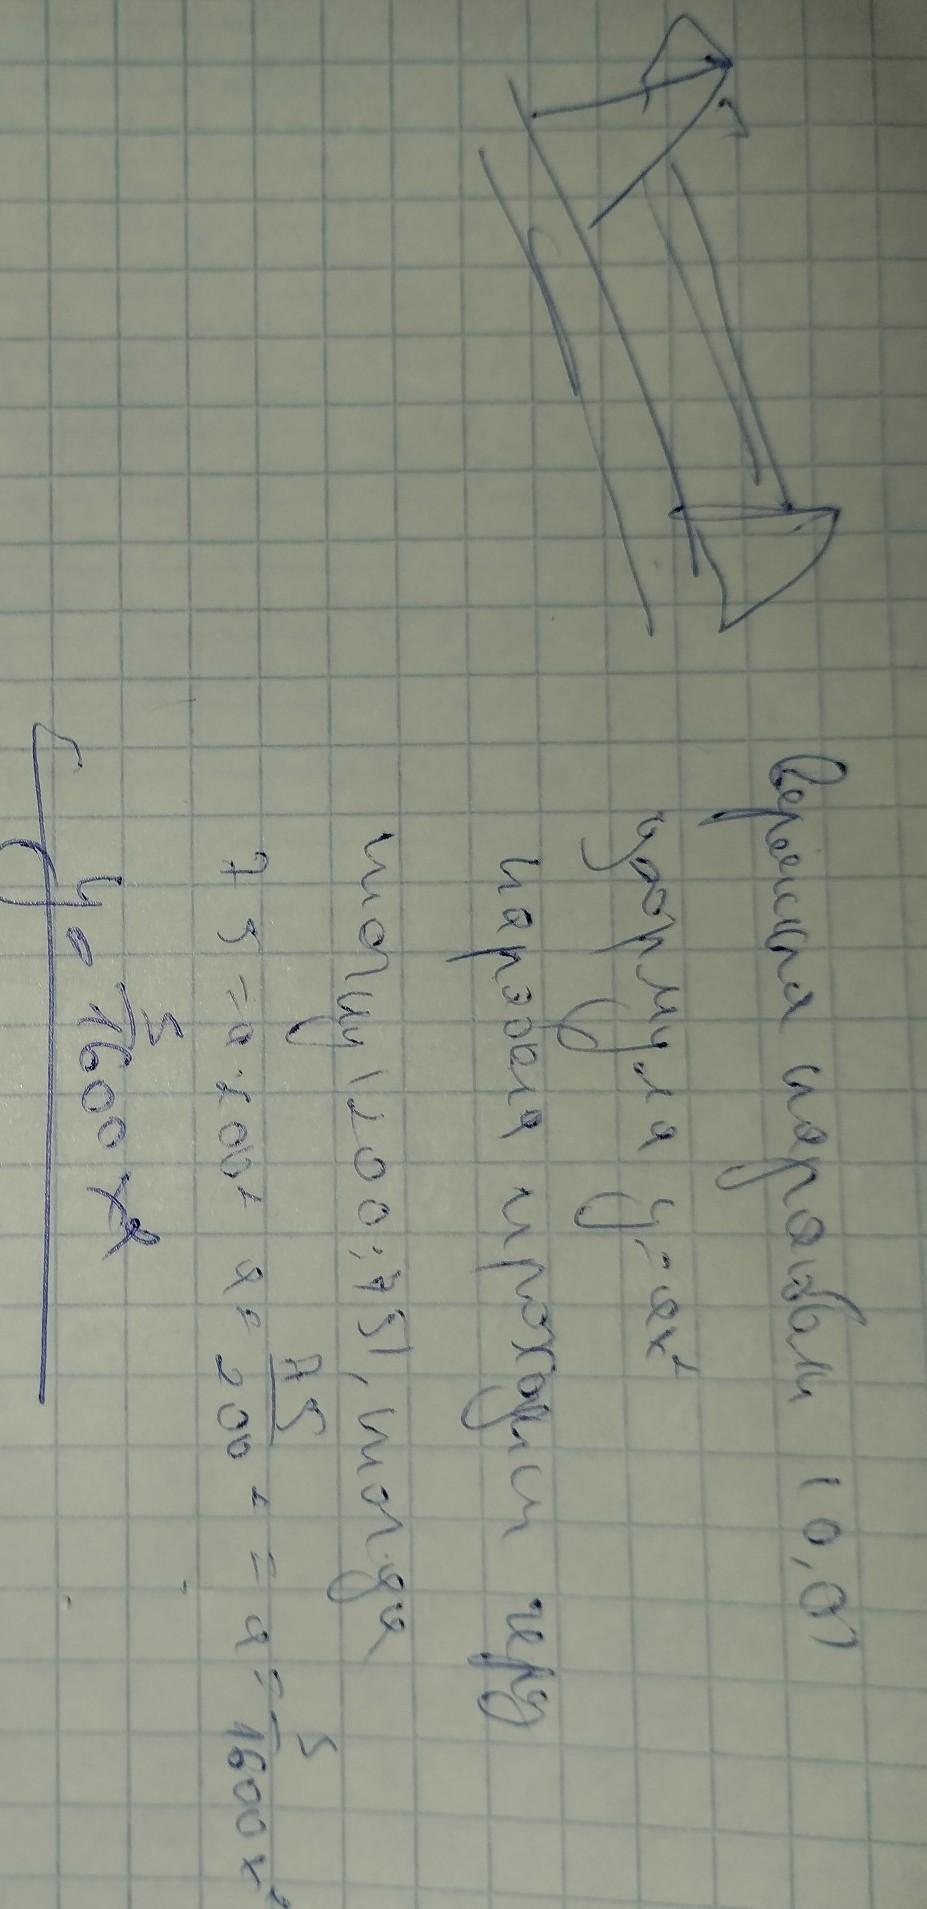 Вершина параболи (0,0)
формула y=ax²
парабола проходит через
точку (200;75), тогда
75=a·200² a=75/200²=a=5/1600x²
y=5/1600x²